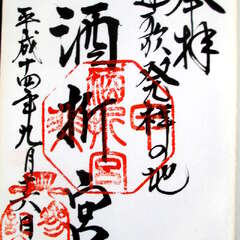 奉拝
連歌発祥の地
酒折宮
平成十四年九月十六日